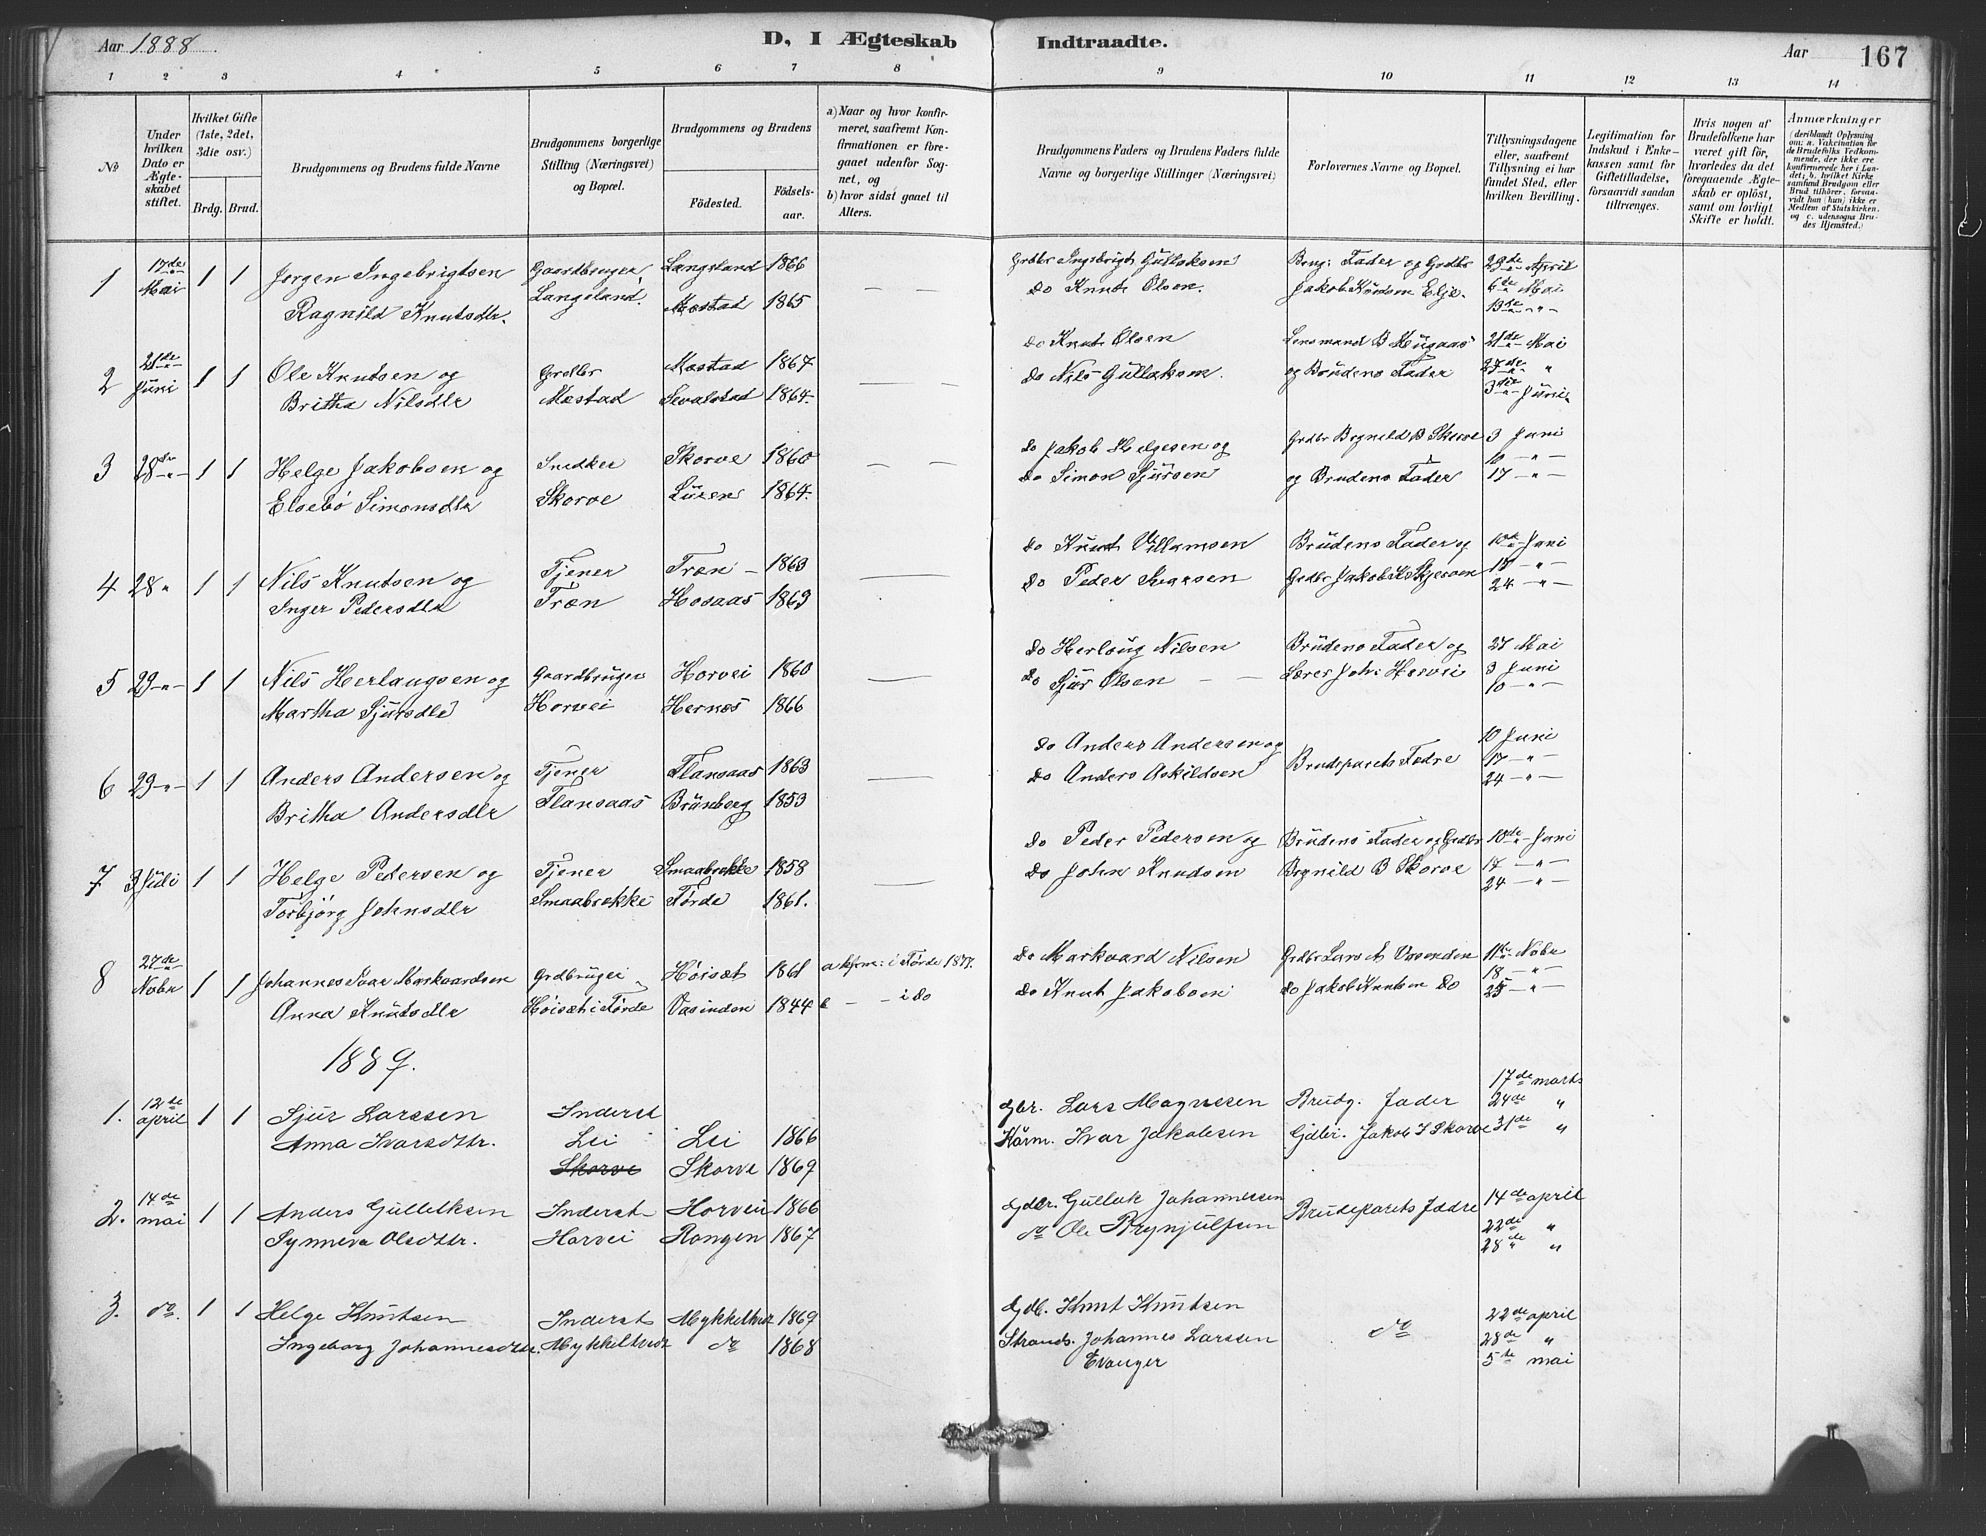 Aar 1888
D, I Ægteskab Indtraadte.
Aar 167
1 2 3 4 5 6 7 8 9 10 11 12 13 14
No
Under hvilken Dato er Ægteskabet stiftet.
Hvilket Gifte (1ste, 2det, 3die osv.)
Brdg. Brud.
Brudgommens og Brudens fulde Navne
Brudgommens borgerlige Stilling (Næringsvei) og Bopæl.
Brudgommens og Brudens
Fødested.
Fødselsaar.
a) Naar og hvor konfirmeret, saafremt Konfirmationen er foregaaet udenfor Sognet, og
b) hvor sidst gaaet til Alters.
Brudgommens Faders og Brudens Faders fulde Navne og borgerlige Stillinger (Næringsvei)
Forlovernes Navne og Bopæl.
Tillysningsdagene eller, saafremt Tillysning ei har fundet Sted, efter hvilken Bevilling.
Legitimation for Indskud i Enkekassen samt for Giftetilladelse, forsaavidt saadan tiltrænges.
Hvis nogen af Brudefolkene har været gift før, hvorledes da det foregaaende Ægteskab er opløst, samt om lovligt Skifte er holdt.
Anmærkninger
(deriblandt Oplysning om: a. Vakcination for de Brudefolks Vedkommende, der ikke ere konfirmerede her i Landet; b. hvilket Kirkesamfund Brudgom eller Brud tilhører, forsaavidt han (hun) ikke er Medlem af Statskirken, og c. udensogns Brudes Hjemsted.)
1 17de Mai 1 1 Jørgen Ingebrigtsen Gaardbruger Langeland 1866 — — Grdbr Ingebrigt Gullaksen Brug: Fader og Grdbr 29de April
Ragnild Knutsdtr. Langeland. Mæstad 1865 do Knut Olsen. Jakob Knudsen Elje. 6te Mai
13de " "
2 21de Juni 1 1 Ole Knutsen og Grdbr Mæstad 1867 — — do Knut Olsen Lensmand B Haugaas 21de Mai
Britha Nilsdtr Mæstad Sevalstad 1864. do Nils Gullaksen. og Brudens Fader 27de "
3die Juni
3 28de " 1 1 Helge Jakobsen og Snedker Skorve 1860 — — do Jakob Helgesen og Grdbr Brynild B Skorve 3 Juni
Elsebø Simonsdtr Skorve 1864. do Simon Sjursen og Brudens Fader 10 — " —
17 — " —
4 28 " 1 1 Nils Knutsen og Tjener Træn — 1863 — do Knut Villamsen Brudens Fader og 10de Juni
Inger Pedersdtr Træn Hosaas 1863 do Peder Grdbr Jakob 17 — " —
24 — " —
5 29 — " — 1 1 Nils Herlaugsen og Gaardbruger Horvei 1860 — do Herloug Nilsen Brudens Fader og 27 Mai
Martha Sjursdtr Horvei Hernæs 1866 do Sjur Olsen — — Lærer Joh: Horvei 3 Juni
10 — " —
6 29 — " — 1 1 Anders Andersen og Tjener Flansaas 1863 — do Anders Andersen og Brudeparets Fædre 10 Juni
Britha Andersdtr Flansaas Brunberg 1853 do Anders Askildsen 17 — " —
24 — " —
7 3 Juli 1 1 Helge Pedersen og Tjener Smaabrekke 1858 — do Peder Pedersen og Brudens Fader og Grdbr 10de Juni
Torbjørg Johnsdtr Smaabrekke Førde 1861. do John Knudsen Brynild B Skorve 17 — " —
24 — " —
8 27de Nobr 1 1 Johannes Markvardsen Grdbruger Høisæt 1861 a i Førde 1877. do Markvard Nilsen Grdbr Lars A Vasenden 11te Nobr
Anna Knutsdtr Høisæt i Førde Vasinden 1844 b — — i do do Knut Jakobsen do Jakob Knutsen do 18 — " —
25 — " —
1889.
1. 12te april 1 1 Sjur Larssen Inderst Lei Lei 1866 gbr. Lars Magnesen Brudg. Fader 17de marts
Anna Ivarsdttr. Skorve Skorve 1869 Ivar Jakobsen Gdbr. Jakob I Skorve 24de "
31de "
2. 14de mai 1 1 Anders Gulleiksen Inderst Horvei 1866 Gdbr. Gullak Johannessen Brudeparets Fædre 14de april
Synneva Olsdttr. Horvei Rongen 1867 do Ole Brynjulfsen 22de "
28de "
3. do. 1 1 Helge Knutsen Inderst Mykkeltvedt 1869 Gdb. Knut Knutsen do 22de april
Ingeborg Johannesdttr. Mykkeltvedt do 1868 Strands. Johannes Larssen 28de "
Evanger 5te mai